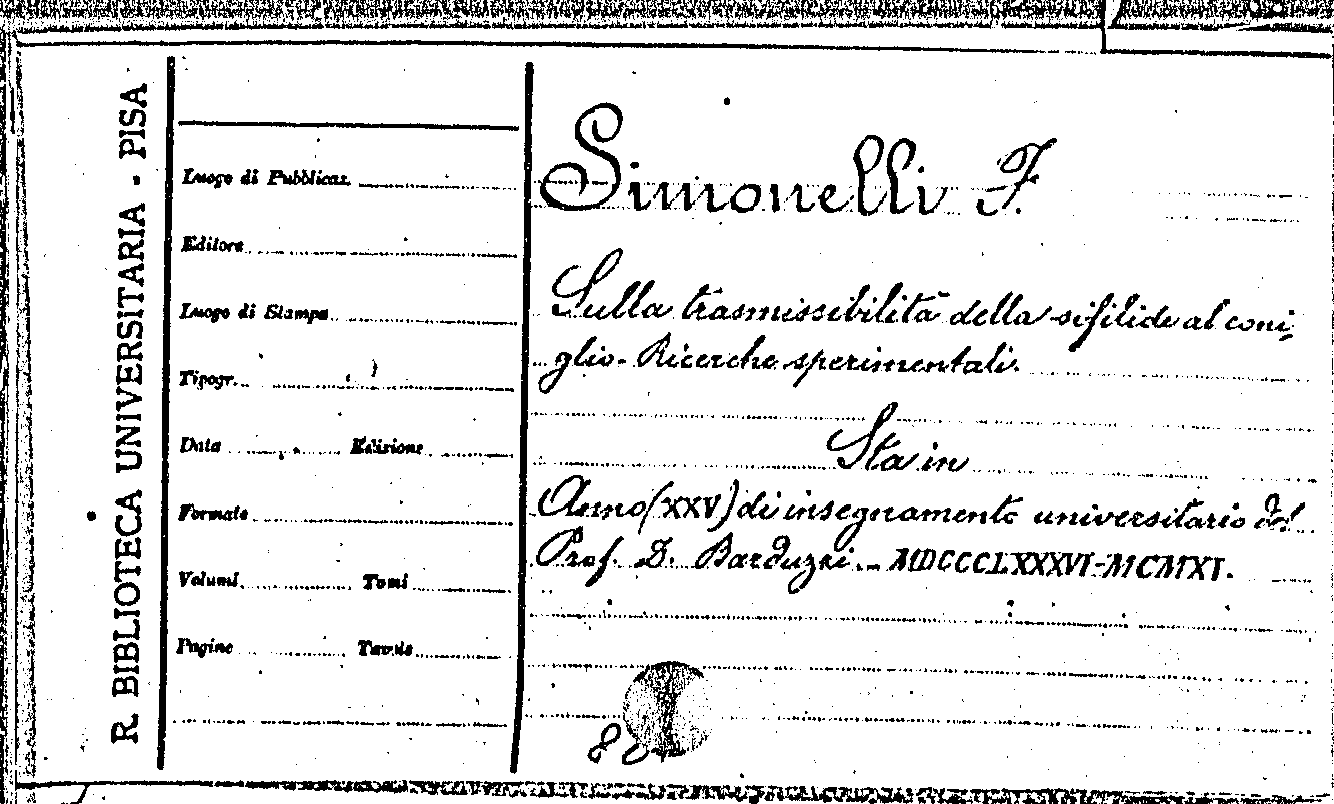 R. BIBLIOTECA UNIVERSITARIA - PISA
Luogo di Pubblicaz.
Editore
Luogo di Stampa
Tipogr.
Data Edizione
Formato
Volumi Tomi
Pagine Tavole
Simonelli F.
Sulla trasmissibilità della sifilide al coni-
glio - Ricerche sperimentali.
Sta in
Anno (XXV) di insegnamento universitario del
Prof. D. Barduzzi. - MDCCCLXXXVI-MCMXI.